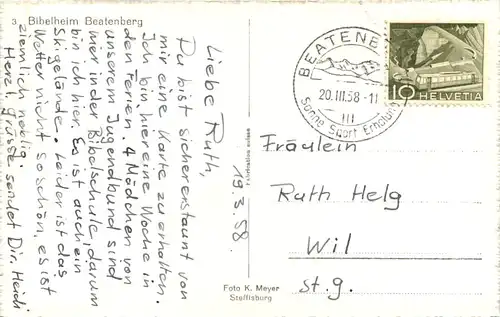 3. Bibelheim Beatenberg
19.3.58.
Liebe Ruth,
Du bist sicher erstaunt von
mir eine Karte zu erhalten.
Ich bin hier eine Woche in
den Ferien. 4 Mädchen von
unserem Jugendbund sind
hier in der Bibelschule, darum
bin ich hier. Es ist auch ein
Skigelände. Leider ist das
Wetter nicht so schön, es ist
ziemlich neblig.
Herzl. Grüsse sendet Dir, Heidi
BEATENB
20.III.58-11
III
Sonne Sport Erholung
10 HELVETIA
Fräulein
Ruth Helg
Wil
St.g.
Foto K. Meyer
Steffisburg
Fabrication suisse